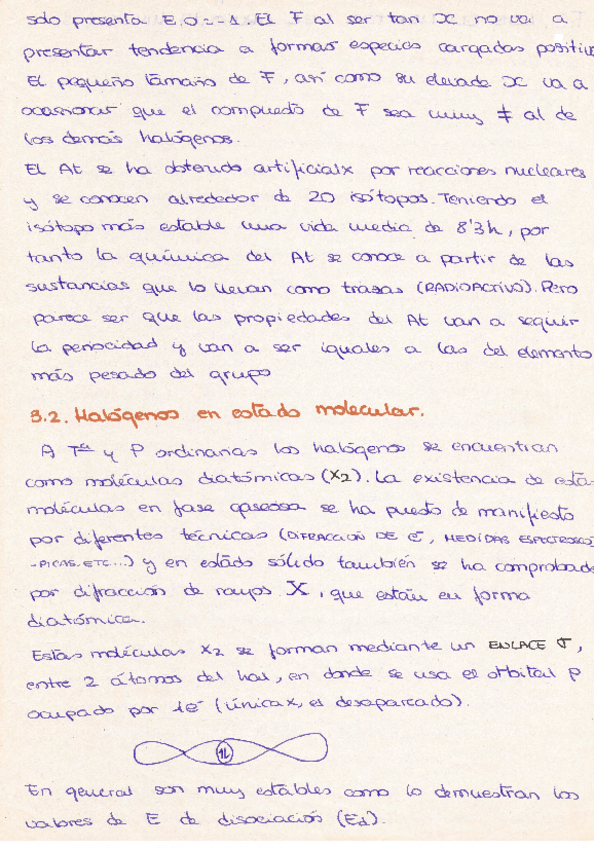 solo presenta E.O = -1. El F al ser tan x no va a
presentar tendencia a formar especies cargadas positiv
El pequeño tamaño de F, así como su elevada x va a
ocasionar que el compuesto de F sea muy ≠ al de
los demás halógenos.
El At se ha obtenido artificialx por reacciones nucleares
y se conocen alrededor de 20 isótopos. Teniendo el
isótopo más estable una vida media de 8'3h, por
tanto la química del At se conoce a partir de las
sustancias que lo llevan como trazas (RADIOACTIVO). Pero
parece ser que las propiedades del At van a seguir
la periocidad y van a ser iguales a las del elemento
más pesado del grupo
3.2. Halógenos en estado molecular.
A Tª y P ordinarias los halógenos se encuentran
como moléculas diatómicas (X2). La existencia de esta-
moléculas en fase gaseosa se ha puesto de manifiesto
por diferentes técnicas (DIFRACCIÓN DE e-, MEDIDAS ESPECTROSCÓ
-PICAS, ETC...) y en estado sólido también se ha comprobado
por difracción de rayos X, que están en forma
diatómica.
Estas moléculas X2 se forman mediante un ENLACE σ,
entre 2 átomos del hal, en donde se usa el orbital p
ocupado por 1e- (únicax, es desaparcado).
1L
En general son muy estables como lo demuestran los
valores de E de disociación (Ed).